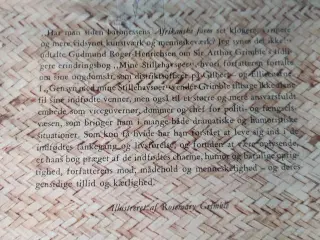 Har man siden baronessens Afrikanske farm set klogere, varmere
og mere vidsynet kunstværk og menneskeværk? Jeg synes det ikke!
udtalte Gudmund Roger Henrichsen om Sir Arthur Grimble's tid-
ligere erindringsbog »Mine Stillehavsøer«, hvori forfatteren fortalte
om sine ungdomsår som distriktsofficer på Gilbert- og Elliceøerne.
I »Gensyn med mine Stillehavsøer« vender Grimble tilbage ikke blot
til sine indfødte venner, men også til et større og mere ansvarsfuldt
embede som viceguvernør, dommer og chef for politi- og fængsels-
væsen, som bringer ham i mange både dramatiske og humoristiske
situationer. Som kun få hvide har han forstået at leve sig ind i de
indfødtes tankegang og livsforståelse, og foruden at være oplysende,
er hans bog præget af de indfødtes charme, humor og barnlige
righed, forfatterens mod, mådehold og menneskelighed – og deres
gensidige tillid og kærlighed.
Illustreret af Rosemary Grimble